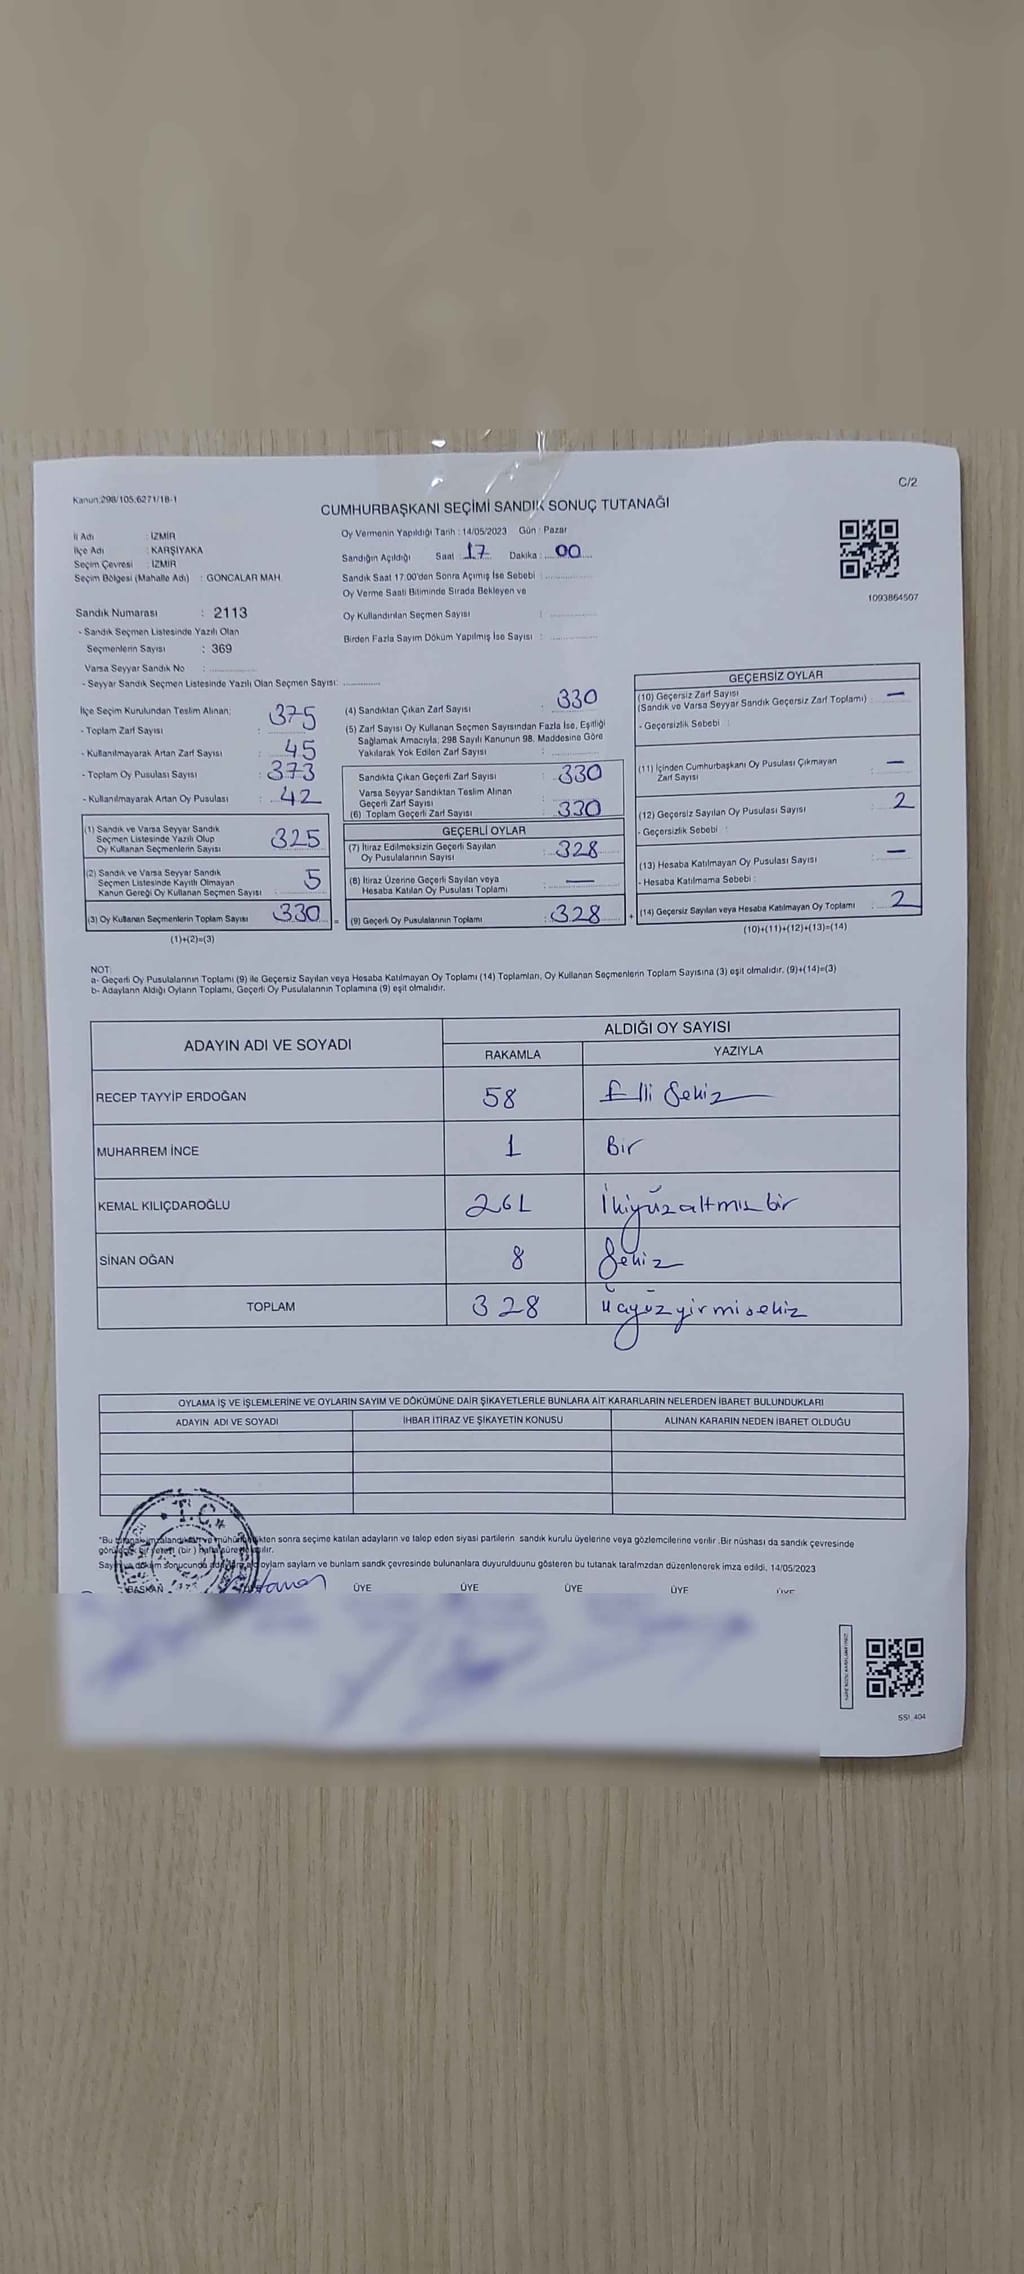 Kanun:298/105,6271/18-1
C/2
CUMHURBAŞKANI SEÇİMİ SANDIK SONUÇ TUTANAĞI
İl Adı : İZMİR
İlçe Adı : KARŞIYAKA
Seçim Çevresi : İZMİR
Seçim Bölgesi (Mahalle Adı) : GONCALAR MAH.
Sandık Numarası : 2113
- Sandık Seçmen Listesinde Yazılı Olan
Seçmenlerin Sayısı : 369
Varsa Seyyar Sandık No :
- Seyyar Sandık Seçmen Listesinde Yazılı Olan Seçmen Sayısı:
Oy Vermenin Yapıldığı Tarih : 14/05/2023 Gün : Pazar
Sandığın Açıldığı Saat : 17 Dakika : 00
Sandık Saat 17.00'den Sonra Açımış İse Sebebi :
Oy Verme Saati Bitiminde Sırada Bekleyen ve
Oy Kullandırılan Seçmen Sayısı :
Birden Fazla Sayım Döküm Yapılmış İse Sayısı :
1093864507
İlçe Seçim Kurulundan Teslim Alınan;
- Toplam Zarf Sayısı : 375
- Kullanılmayarak Artan Zarf Sayısı : 45
- Toplam Oy Pusulası Sayısı : 373
- Kullanılmayarak Artan Oy Pusulası : 42
(1) Sandık ve Varsa Seyyar Sandık
Seçmen Listesinde Yazılı Olup
Oy Kullanan Seçmenlerin Sayısı : 325
(2) Sandık ve Varsa Seyyar Sandık
Seçmen Listesinde Kayıtlı Olmayan
Kanun Gereği Oy Kullanan Seçmen Sayısı : 5
(3) Oy Kullanan Seçmenlerin Toplam Sayısı : 330
(1)+(2)=(3)
=
(4) Sandıktan Çıkan Zarf Sayısı : 330
(5) Zarf Sayısı Oy Kullanan Seçmen Sayısından Fazla İse, Eşitliği
Sağlamak Amacıyla, 298 Sayılı Kanunun 98. Maddesine Göre
Yakılarak Yok Edilen Zarf Sayısı :
Sandıkta Çıkan Geçerli Zarf Sayısı : 330
Varsa Seyyar Sandıktan Teslim Alınan
Geçerli Zarf Sayısı :
(6) Toplam Geçerli Zarf Sayısı : 330
GEÇERLİ OYLAR
(7) İtiraz Edilmeksizin Geçerli Sayılan
Oy Pusulalarının Sayısı : 328
(8) İtiraz Üzerine Geçerli Sayılan veya
Hesaba Katılan Oy Pusulası Toplamı : —
(9) Geçerli Oy Pusulalarının Toplamı : 328
+
GEÇERSİZ OYLAR
(10) Geçersiz Zarf Sayısı : —
(Sandık ve Varsa Seyyar Sandık Geçersiz Zarf Toplamı)
- Geçersizlik Sebebi :
(11) İçinden Cumhurbaşkanı Oy Pusulası Çıkmayan
Zarf Sayısı : —
(12) Geçersiz Sayılan Oy Pusulası Sayısı : 2
- Geçersizlik Sebebi :
(13) Hesaba Katılmayan Oy Pusulası Sayısı : —
- Hesaba Katılmama Sebebi :
(14) Geçersiz Sayılan veya Hesaba Katılmayan Oy Toplamı : 2
(10)+(11)+(12)+(13)=(14)
NOT
a- Geçerli Oy Pusulalarının Toplamı (9) ile Geçersiz Sayılan veya Hesaba Katılmayan Oy Toplamı (14) Toplamları, Oy Kullanan Seçmenlerin Toplam Sayısına (3) eşit olmalıdır. (9)+(14)=(3)
b- Adayların Aldığı Oyların Toplamı, Geçerli Oy Pusulalarının Toplamına (9) eşit olmalıdır.
ADAYIN ADI VE SOYADI
ALDIĞI OY SAYISI
RAKAMLA YAZIYLA
RECEP TAYYİP ERDOĞAN 58 Elli Sekiz
MUHARREM İNCE 1 Bir
KEMAL KILIÇDAROĞLU 261 İkiyüzaltmışbir
SİNAN OĞAN 8 Sekiz
TOPLAM 328 Üçyüzyirmisekiz
OYLAMA İŞ VE İŞLEMLERİNE VE OYLARIN SAYIM VE DÖKÜMÜNE DAİR ŞİKAYETLERLE BUNLARA AİT KARARLARIN NELERDEN İBARET BULUNDUKLARI
ADAYIN ADI VE SOYADI İHBAR İTİRAZ VE ŞİKAYETİN KONUSU ALINAN KARARIN NEDEN İBARET OLDUĞU
T.C.
*Bu ve sonra seçime katılan adayların ve talep eden siyasi partilerin sandık kurulu üyelerine veya gözlemcilerine verilir .Bir nüshası da sandık çevresinde
bir (bir)
Sayım ve döküm sonucunda oylam saylarm ve bunlarm sandk çevresinde bulunanlara duyurulduunu gösteren bu tutanak tarafmzdan düzenlenerek imza edildi. 14/05/2023
BAŞKAN ÜYE ÜYE ÜYE ÜYE ÜYE
SSI_404